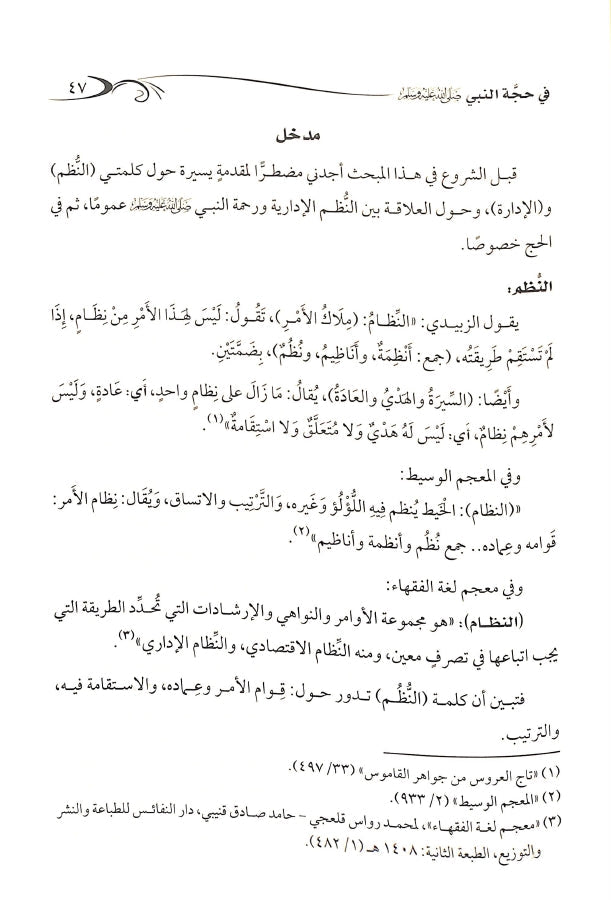 في حجَّة النبي ﷺ
٤٧
مدخل
قبل الشروع في هذا المبحث أجدني مضطرًّا لمقدمةٍ يسيرة حول كلمتي (النُّظم)
و(الإدارة)، وحول العلاقة بين النُّظم الإدارية ورحمة النبي ﷺ عمومًا، ثم في
الحج خصوصًا.
النُّظم:
يقول الزبيدي: «النِّظامُ: (مِلَاكُ الأَمْرِ)، تَقُولُ: لَيْسَ لِهَذَا الأَمْرِ مِنْ نِظَامٍ، إِذَا
لَمْ تَسْتَقِمْ طَرِيقَتُه، (جمع: أَنْظِمَةٌ، وأَنَاظِيمُ، ونُظُمٌ)، بِضَمَّتَيْنِ.
وأَيْضًا: (السِّيرَةُ والهَدْيُ والعَادَةُ)، يُقالُ: مَا زَالَ على نِظامٍ واحدٍ، أَي: عَادةٍ، وَلَيْسَ
لأَمْرِهِمْ نِظامٌ، أي: لَيْسَ لَهُ هَدْيٌ وَلَا مُتَعَلَّقٌ وَلَا اسْتِقَامَةٌ»(١).
وفي المعجم الوسيط:
«(النظام): الخَيط يُنظم فِيهِ اللُّؤْلُؤ وَغَيره، وَالتَّرْتِيب والاتساق، وَيُقَال: نِظام الأمر:
قَوامه وعِماده.. جمع نُظُم وأنظمة وأناظيم»(٢).
وفي معجم لغة الفقهاء:
(النظـام): «هو مجموعة الأوامر والنواهي والإرشادات التي تُحدِّد الطريقة التي
يجب اتباعها في تصرفٍ معين، ومنه النِّظام الاقتصادي، والنِّظام الإداري»(٣).
فتبين أن كلمـة (النُّظُـم) تـدور حـول: قِـوام الأمـر وعِـماده، والاسـتقامة فيـه،
والترتيب.
(١) «تاج العروس من جواهر القاموس» (٣٣/ ٤٩٧).
(٢) «المعجم الوسيط» (٢/ ٩٣٣).
(٣) «معجم لغة الفقهاء»، لمحمـد رواس قلعجي – حامد صـادق قنيبي، دار النفائس للطباعة والنشر
والتوزيع، الطبعة الثانية: ١٤٠٨ هـ (١/ ٤٨٢).